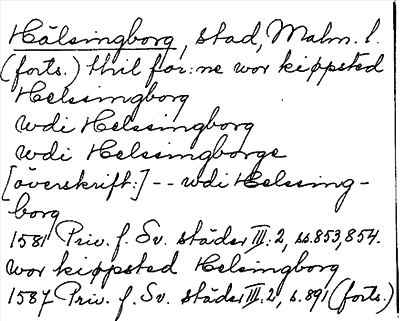 Hälsingborg, stad, Malm. l.
(forts.) thil for:ne wor kiøpsted
Helsingborg
wdi Helsingborg
wdi Helssingborge
[överskrift:] -- wdi Helssing-
borg
1581 Priv. f. Sv. städer III:2, ss. 853, 854.
wor kiøpsted Helsingborg
1587 Priv. f. Sv. städer III:2, s. 891 (forts.)